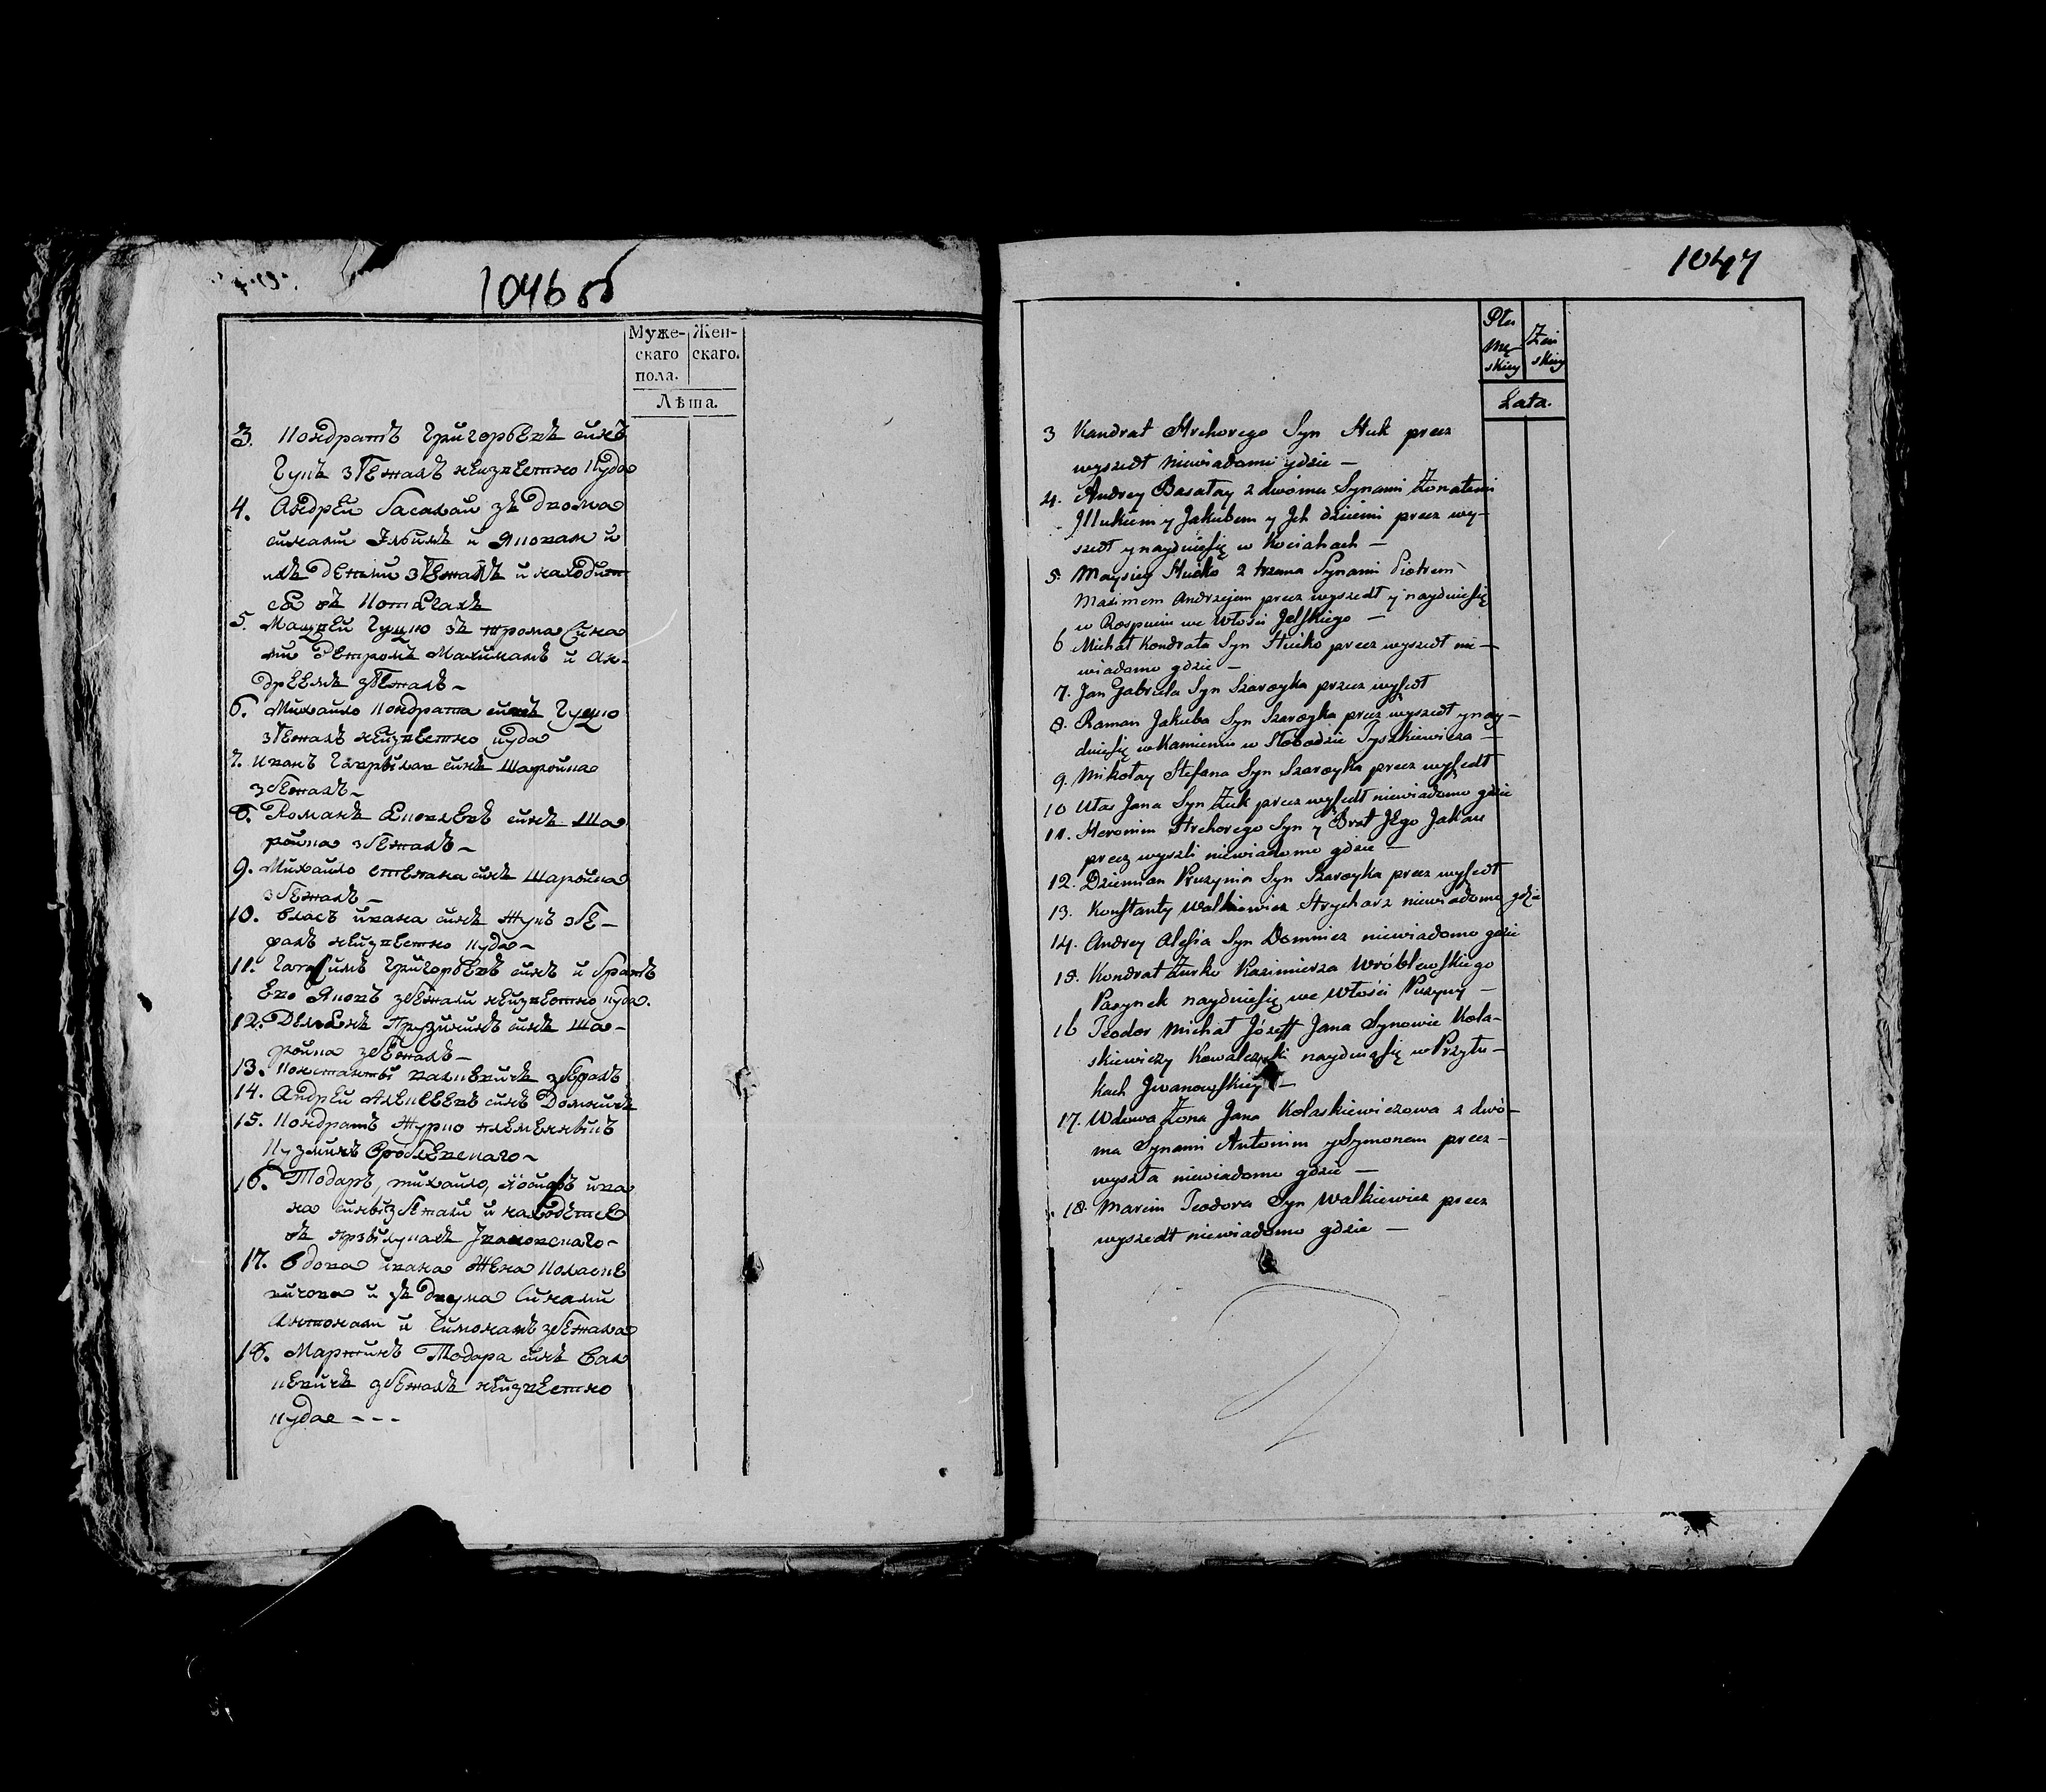 1046 об
Муже- Жен-
скаго скаго.
пола.
Лѣта.
3. Кондратъ Григорьевъ синъ
Гукъ збежалъ неизвестно куда
4. Андрей Басалай зъ двома
синами Илькомъ и Яковам и
ихъ детми збежалъ и находит
ся въ Котягахъ
5. Мацвей Гуцко зъ трома Сина
ми Петромъ Махимамъ и Ан-
дреемъ збежалъ –
6. Михайло Кондрата синъ Гуцко
збежалъ неизвестно куда
7. Иванъ Гаврылав синъ Шаройка
збежалъ –
8. Романъ Яковлевъ синъ Ша
ройка збежалъ –
9. Михайло стежана синъ Шаройка
збежалъ –
10. Власъ ивана синъ Жукъ збе-
жалъ неизвестно куда –
11. Григорьевъ синъ и братъ
Ево Яковъ збежали неизвестно куда.
12. Демьянъ Прузининъ синъ Ша-
ройка збежалъ –
13. Константы валкевичъ збежалъ
14. Андрей Алексеевъ синъ Доминичъ
15. Кондратъ Журко племенникъ
Кузминъ Вроблевскаго –
16. Тодаръ, михайло, иосифъ ива
на сины збежали и находетсе
въ прылукахъ Ивановскаго –
17. Вдова ивана Жена Коласке
вичова и зъ двума Синами
Антонам и Симонамъ збежала
18. Марцинъ Тодара синъ Вал
кевичъ збежалъ неизвестно
кудае - - -
1047
Płci
Mę-
skiey
Żeń
skiey
Lata.
3 Kandrat Hrehorego Syn Huk precz
wyszedł niewiadomi gdzie –
4. Andrey Basałay z dwóma Synami Żonatemi
Jllukiem y Jakubem y Jch dziećmi precz wy-
szedł y nayduieſię w Kociahach –
5. Maysiey Hucko z trzema Synami Piotrem
Maximem Andrzejem precz wyszedł y nayduieſię
w Rospnim we Włości Jelſkiego –
6 Michał Kondrata Syn Hucko precz wyszedł nie-
wiadomo gdzie –
7. Jan Gabriela Syn Szaroyka precz wyſzedł
8. Raman Jakuba Syn Szaroyka precz wyszedł y nay-
duieſię w Kamieniu w Słobodzie Tyszkiewicza –
9. Mikołay Stefana Syn Szaroyka precz wyſzedł
10 Ułas Jana Syn Żuk precz wyſzedł niewiadomo gdzie
11. Heronim Hrehorego Syn y Brat Jego Jakau
precz wyszli niewiadomo gdzie –
12. Dziemian Pruzynia Syn Szaroyka precz wyſzedł
13. Konſtanty Walkiewicz Strycharz niewiadomo gdzie
14. Andrey Aleſia Syn Dominicz niewiadomo gdzie
15. Kondrat Żurko Kazimierza Wróblewſkiego
Pasynek nayduieſię we Włości Puzyny –
16 Teodor Michał Józeff Jana Synowie Kola-
skiewiczy Kowalczuki nayduiąſię w Przyłu-
kach Jwanowſkiey –
17. Wdowa Żona Jana Kolaskiewiczowa z dwó-
ma Synami Antonim y Symonem precz-
wyszła niewiadomo gdzie –
18. Marcin Teodora Syn Walkiewicz precz
wyszedł niewiadomo gdzie –